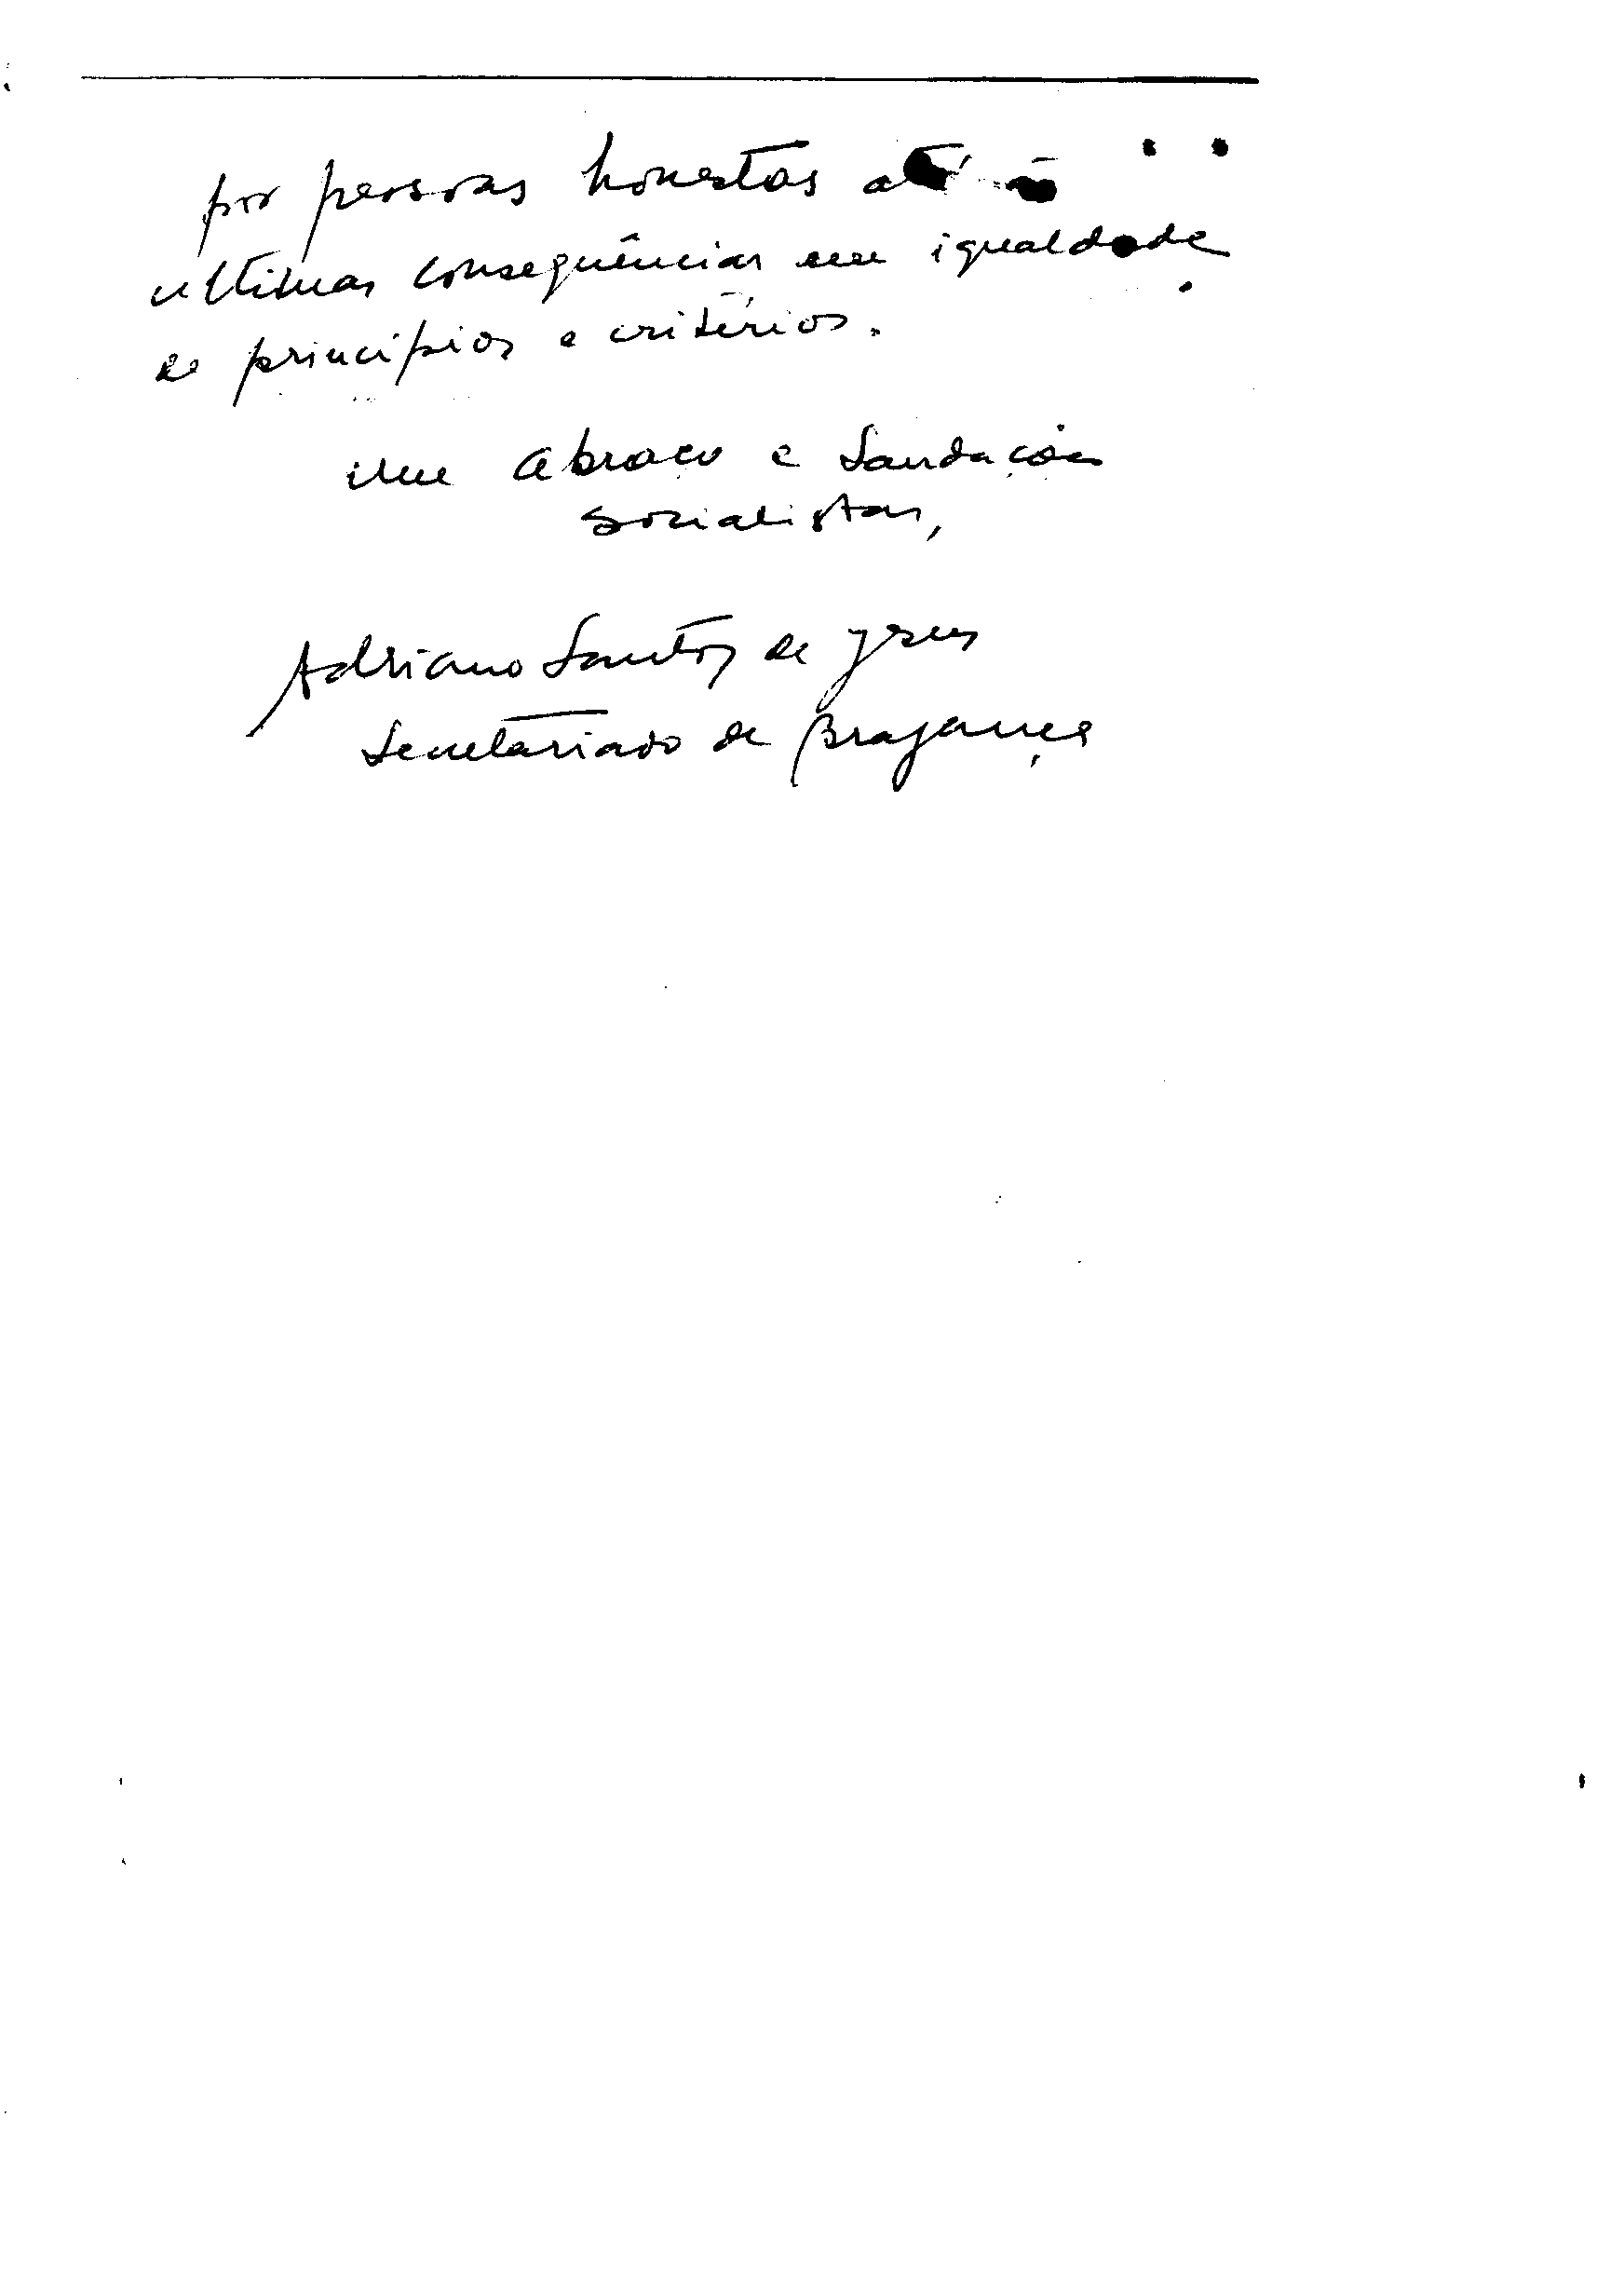 por pessoas honestas até
ultimas consequências em igualdade
de princípios e critérios.
um abraço e saudações
socialistas,
Adriano Santos de
Secretariado de Bragança